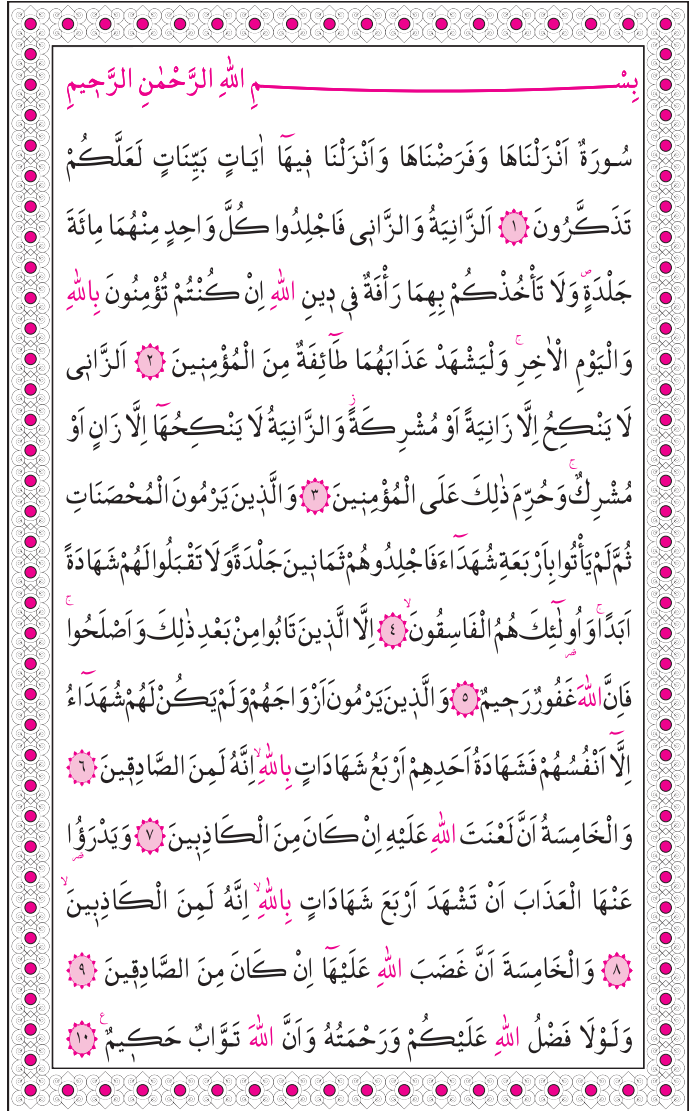 بِسْمِ اللّٰهِ الرَّحْمٰنِ الرَّحٖيمِ
سُورَةٌ اَنْزَلْنَاهَا وَفَرَضْنَاهَا وَاَنْزَلْنَا فٖيهَٓا اٰيَاتٍ بَيِّنَاتٍ لَعَلَّكُمْ
تَذَكَّرُونَ ﴿١﴾ اَلزَّانِيَةُ وَالزَّانٖى فَاجْلِدُوا كُلَّ وَاحِدٍ مِنْهُمَا مِائَةَ
جَلْدَةٍࣕ وَلَا تَأْخُذْكُمْ بِهِمَا رَأْفَةٌ فٖى دٖينِ اللّٰهِ اِنْ كُنْتُمْ تُؤْمِنُونَ بِاللّٰهِ
وَالْيَوْمِ الْاٰخِرِۚ وَلْيَشْهَدْ عَذَابَهُمَا طَٓائِفَةٌ مِنَ الْمُؤْمِنٖينَ ﴿٢﴾ اَلزَّانٖى
لَا يَنْكِحُ اِلَّا زَانِيَةً اَوْ مُشْرِكَةًؗ وَالزَّانِيَةُ لَا يَنْكِحُهَٓا اِلَّا زَانٍ اَوْ
مُشْرِكٌۚ وَحُرِّمَ ذٰلِكَ عَلَى الْمُؤْمِنٖينَ ﴿٣﴾ وَالَّذٖينَ يَرْمُونَ الْمُحْصَنَاتِ
ثُمَّ لَمْ يَأْتُوا بِاَرْبَعَةِ شُهَدَٓاءَ فَاجْلِدُوهُمْ ثَمَانٖينَ جَلْدَةً وَلَا تَقْبَلُوا لَهُمْ شَهَادَةً
اَبَدًاۚ وَاُو۬لٰٓئِكَ هُمُ الْفَاسِقُونَۙ ﴿٤﴾ اِلَّا الَّذٖينَ تَابُوا مِنْ بَعْدِ ذٰلِكَ وَاَصْلَحُواۚ
فَاِنَّ اللّٰهَ غَفُورٌ رَحٖيمٌ ﴿٥﴾ وَالَّذٖينَ يَرْمُونَ اَزْوَاجَهُمْ وَلَمْ يَكُنْ لَهُمْ شُهَدَٓاءُ
اِلَّٓا اَنْفُسُهُمْ فَشَهَادَةُ اَحَدِهِمْ اَرْبَعُ شَهَادَاتٍ بِاللّٰهِۙ اِنَّهُ لَمِنَ الصَّادِقٖينَ ﴿٦﴾
وَالْخَامِسَةُ اَنَّ لَعْنَتَ اللّٰهِ عَلَيْهِ اِنْ كَانَ مِنَ الْكَاذِبٖينَ ﴿٧﴾ وَيَدْرَؤُ۬ا
عَنْهَا الْعَذَابَ اَنْ تَشْهَدَ اَرْبَعَ شَهَادَاتٍ بِاللّٰهِۙ اِنَّهُ لَمِنَ الْكَاذِبٖينَۙ
﴿٨﴾ وَالْخَامِسَةَ اَنَّ غَضَبَ اللّٰهِ عَلَيْهَٓا اِنْ كَانَ مِنَ الصَّادِقٖينَ ﴿٩﴾
وَلَوْلَا فَضْلُ اللّٰهِ عَلَيْكُمْ وَرَحْمَتُهُ وَاَنَّ اللّٰهَ تَوَّابٌ حَكٖيمٌࣖ ﴿١٠﴾